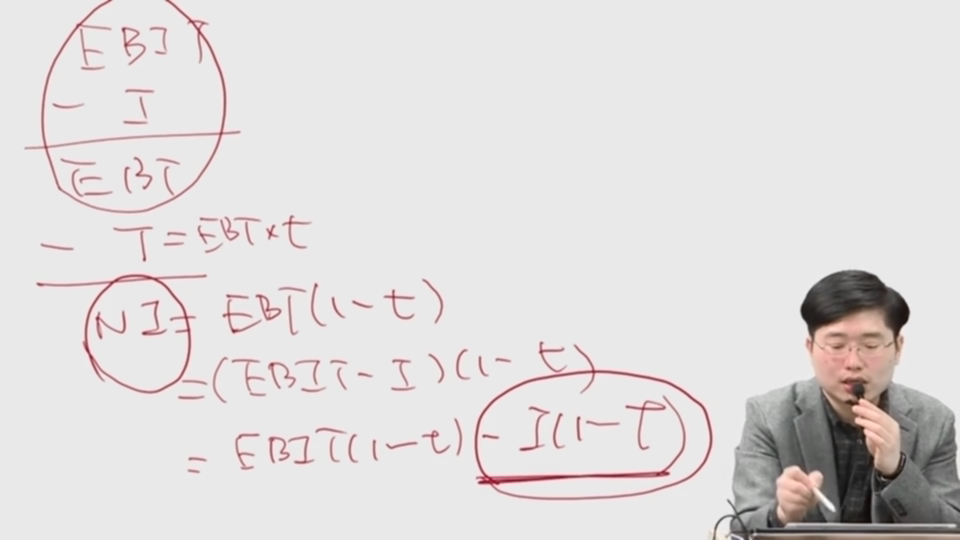 EBIT
- I
EBT
- T = EBT×t
NI = EBT(1-t)
= (EBIT - I)(1-t)
= EBIT(1-t) - I(1-T)